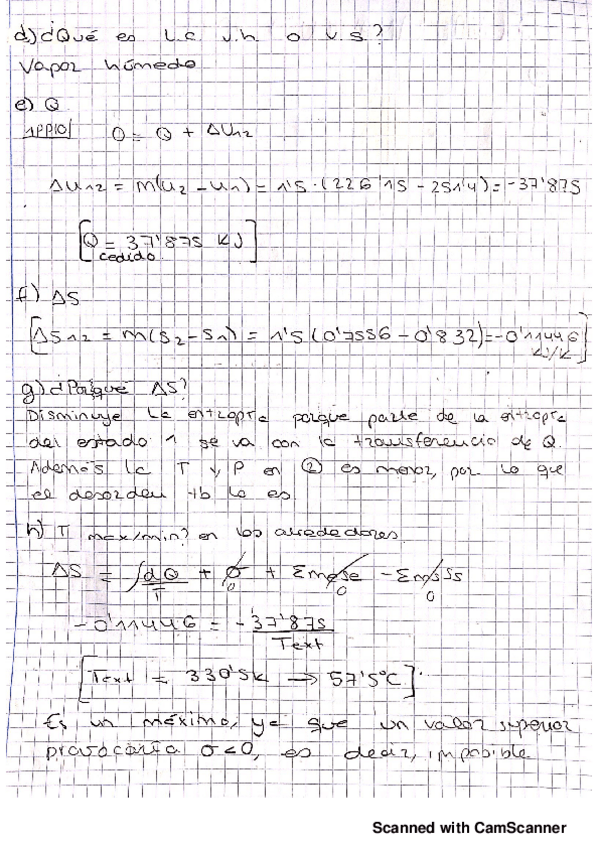 d) ¿Qué es l.c. v.h. o v.s.?
Vapor húmedo
e) Q
1PPIO 0 = Q + ΔU12
ΔU12 = m(u2 - u1) = 1'5 · (226'15 - 251'4) = -37'875
[Q = 37'875 KJ]
cedido
f) ΔS
[ΔS12 = m(s2 - s1) = 1'5 (0'7556 - 0'832) = -0'11446
KJ/K]
g) ¿Porqué ΔS?
Disminuye la entropía porque parte de la entropía
del estado 1 se va con la transferencia de Q.
Además la T y P en ② es menor, por lo que
el desorden tb lo es
h) T max/min? en los alrededores.
ΔS = ∫dQ/T + σ + Σmese - Σmsss
0 0 0
-0'11446 = -37'875/Text
[Text = 330'5K → 57'5°C].
Es un máximo, ya que un valor superior
provocaría σ<0, es decir, imposible
Scanned with CamScanner